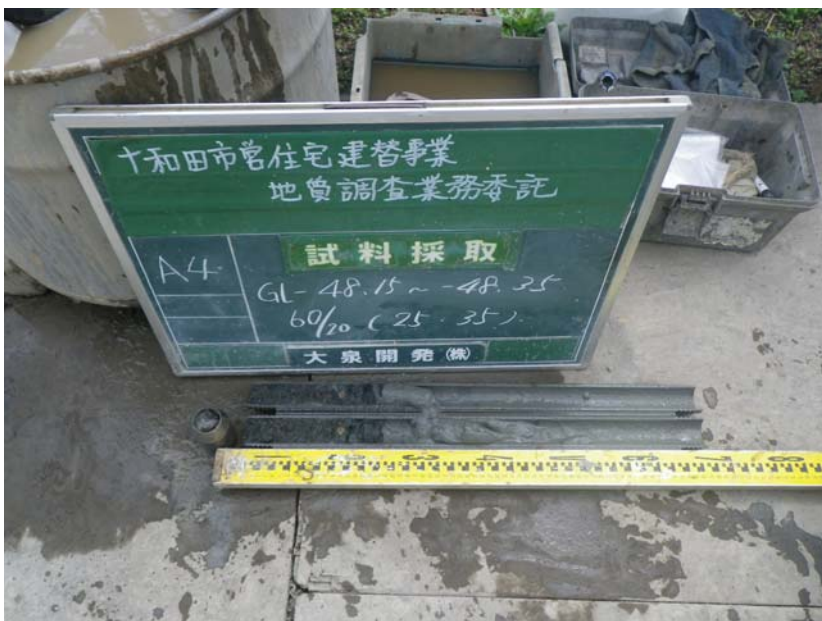 十和田市営住宅建替事業
地質調査業務委託
試料採取
A4
GL- 48.15 ~ -48.35
60/20 (25 35)
大泉開発(株)
1 2 3 4 5 6 7 8